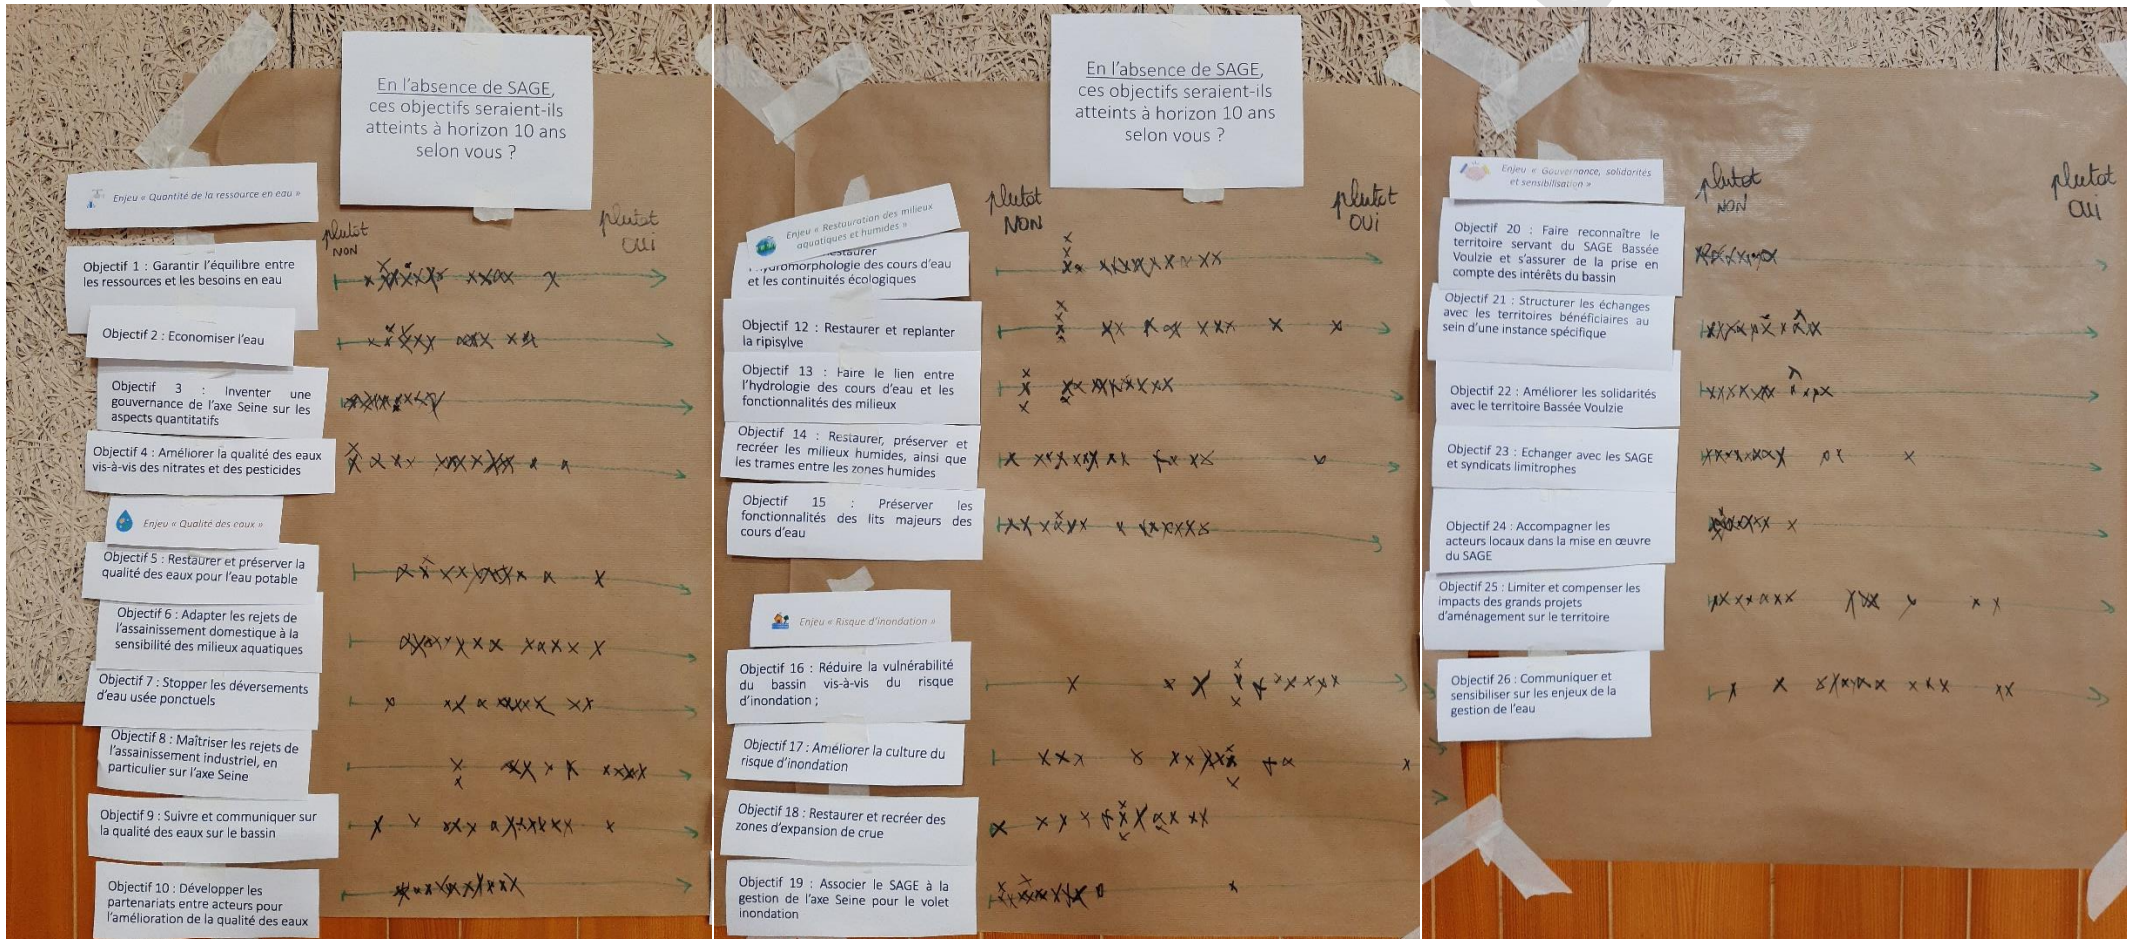 En l'absence de SAGE,
ces objectifs seraient-ils
atteints à horizon 10 ans
selon vous ?
Enjeu « Quantité de la ressource en eau »
plutôt
NON
plutôt
OUI
Objectif 1 : Garantir l'équilibre entre
les ressources et les besoins en eau
Objectif 2 : Economiser l'eau
Objectif 3 : Inventer une
gouvernance de l'axe Seine sur les
aspects quantitatifs
Objectif 4 : Améliorer la qualité des eaux
vis-à-vis des nitrates et des pesticides
Enjeu « Qualité des eaux »
Objectif 5 : Restaurer et préserver la
qualité des eaux pour l'eau potable
Objectif 6 : Adapter les rejets de
l'assainissement domestique à la
sensibilité des milieux aquatiques
Objectif 7 : Stopper les déversements
d'eau usée ponctuels
Objectif 8 : Maîtriser les rejets de
l'assainissement industriel, en
particulier sur l'axe Seine
Objectif 9 : Suivre et communiquer sur
la qualité des eaux sur le bassin
Objectif 10 : Développer les
partenariats entre acteurs pour
l'amélioration de la qualité des eaux
En l'absence de SAGE,
ces objectifs seraient-ils
atteints à horizon 10 ans
selon vous ?
plutôt
NON
plutôt
OUI
Enjeu « Restauration des milieux
aquatiques et humides »
l'hydromorphologie des cours d'eau
et les continuités écologiques
Objectif 12 : Restaurer et replanter
la ripisylve
Objectif 13 : Faire le lien entre
l'hydrologie des cours d'eau et les
fonctionnalités des milieux
Objectif 14 : Restaurer, préserver et
recréer les milieux humides, ainsi que
les trames entre les zones humides
Objectif 15 : Préserver les
fonctionnalités des lits majeurs des
cours d'eau
Enjeu « Risque d'inondation »
Objectif 16 : Réduire la vulnérabilité
du bassin vis-à-vis du risque
d'inondation ;
Objectif 17 : Améliorer la culture du
risque d'inondation
Objectif 18 : Restaurer et recréer des
zones d'expansion de crue
Objectif 19 : Associer le SAGE à la
gestion de l'axe Seine pour le volet
inondation
Enjeu « Gouvernance, solidarités
et sensibilisation »
plutôt
NON
plutôt
OUI
Objectif 20 : Faire reconnaître le
territoire servant du SAGE Bassée
Voulzie et s'assurer de la prise en
compte des intérêts du bassin
Objectif 21 : Structurer les échanges
avec les territoires bénéficiaires au
sein d'une instance spécifique
Objectif 22 : Améliorer les solidarités
avec le territoire Bassée Voulzie
Objectif 23 : Echanger avec les SAGE
et syndicats limitrophes
Objectif 24 : Accompagner les
acteurs locaux dans la mise en œuvre
du SAGE
Objectif 25 : Limiter et compenser les
impacts des grands projets
d'aménagement sur le territoire
Objectif 26 : Communiquer et
sensibiliser sur les enjeux de la
gestion de l'eau